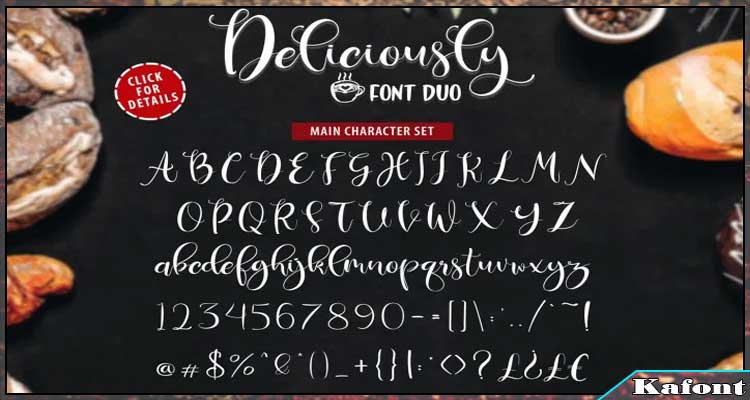 Deliciously
FONT DUO
CLICK
FOR
DETAILS
MAIN CHARACTER SET
A B C D E F G H I J K L M N
O P Q R S T U V W X Y Z
abcdefghijklmnopqrstuvwxyz
1234567890-=[]\;',./`~!
@#$%^&*()_+{}|:"<>?£¿£€
Kafont